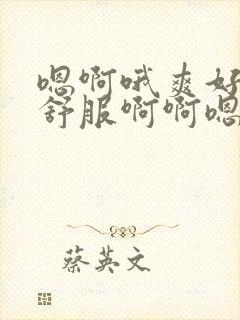 嗯啊哦爽好
舒服啊啊嗯
蔡英文